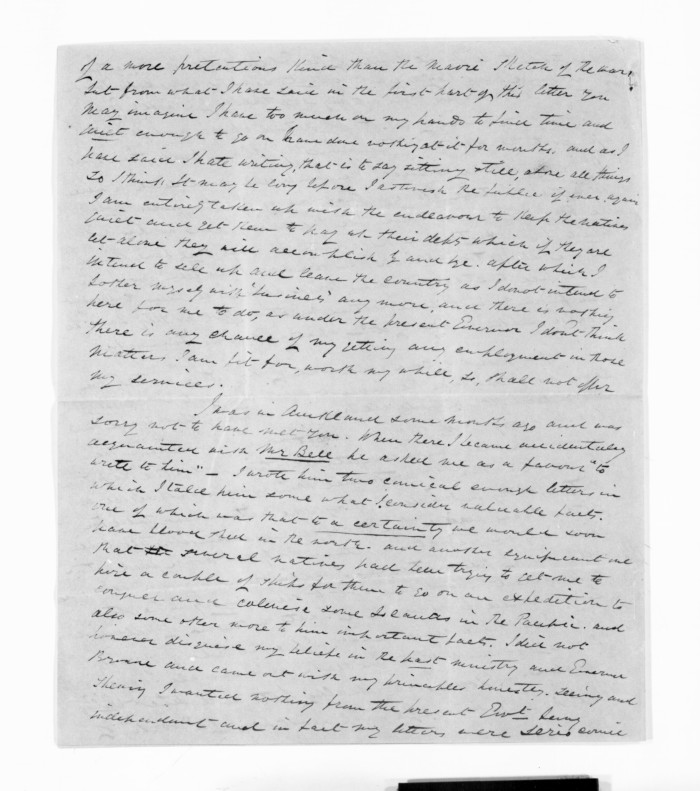 of a more pretentious kind than the Maori Sketch of the war
but from what I have said in the first part of this letter you
may imagine I have too much on my hands to find time and
quiet enough to go on have done nothing at it for months. and as I
have said I hate writing, that is to say sitting still, above all things
so I think it may be long before I astonish the public if ever again
I am entirely taken up with the endeavour to keep the natives
quiet and get them to pay up their debts which if they are
let alone they will accomplish by and bye. after which I
intend to sell up and leave the country as I do not intend to
bother myself with "business" any more, and there is nothing
here for me to do, as under the present Governor I don't think
there is any chance of my getting any employment in those
matters I am fit for, worth my while, so, shall not offer
my services.
I was in Auckland some months ago and was
sorry not to have met you. When there I became accidentaley
acquainted with Mr Bell he asked me as a favour "to
write to him" — I wrote him two comical enough letters in
which I told him some what I consider valuable facts.
one of which was that to a certainty we would soon
have blood shed in the north. and another significant one
that several natives had been trying to get me to
hire a couple of ships for them to go on an expedition to
conquer and colonise some Islands in the Pacific. and
also some other more to him important facts. I did not
however disguise my beliefs in the past ministry and Governor
Browne and came out with my principles honestly. seeing and
shewing I wanted nothing from the present Govt. being
independant and in fact my letters were serio comic